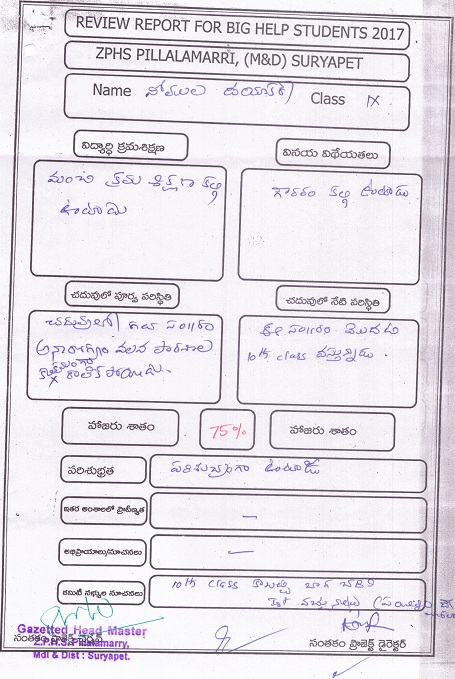 REVIEW REPORT FOR BIG HELP STUDENTS 2017
ZPHS PILLALAMARRI, (M&D) SURYAPET
Name Class IX
విద్యార్థి క్రమశిక్షణ
వినయ విధేయతలు
మంచి క్రమ శిక్షణ కల్గి
ఉంటాడు
గౌరవం కల్గి ఉంటాడు
చదువులో పూర్వ పరిస్థితి
చదువులో నేటి పరిస్థితి
చదువులో గత సం॥రం
అనారోగ్యం వలన పాఠశాల
రాలేక పోయిడు.
ఈ సం॥రం మొదట
10th class వస్తున్నాడు.
హాజరు శాతం 75% హాజరు శాతం
పరిశుభ్రత పరిశుభ్రంగా ఉంటాడు
ఇతర అంశాలలో ప్రావీణ్యత –
అభిప్రాయాలు/సూచనలు –
కమిటీ సభ్యుల సూచనలు 10th class కాబట్టి బాగా చదివి
Gazetted Head Master
సంతకం సంతకం ప్రాజెక్ట్ డైరెక్టర్
Z.P.H.S. Pillalamarry,
Mdl & Dist : Suryapet.